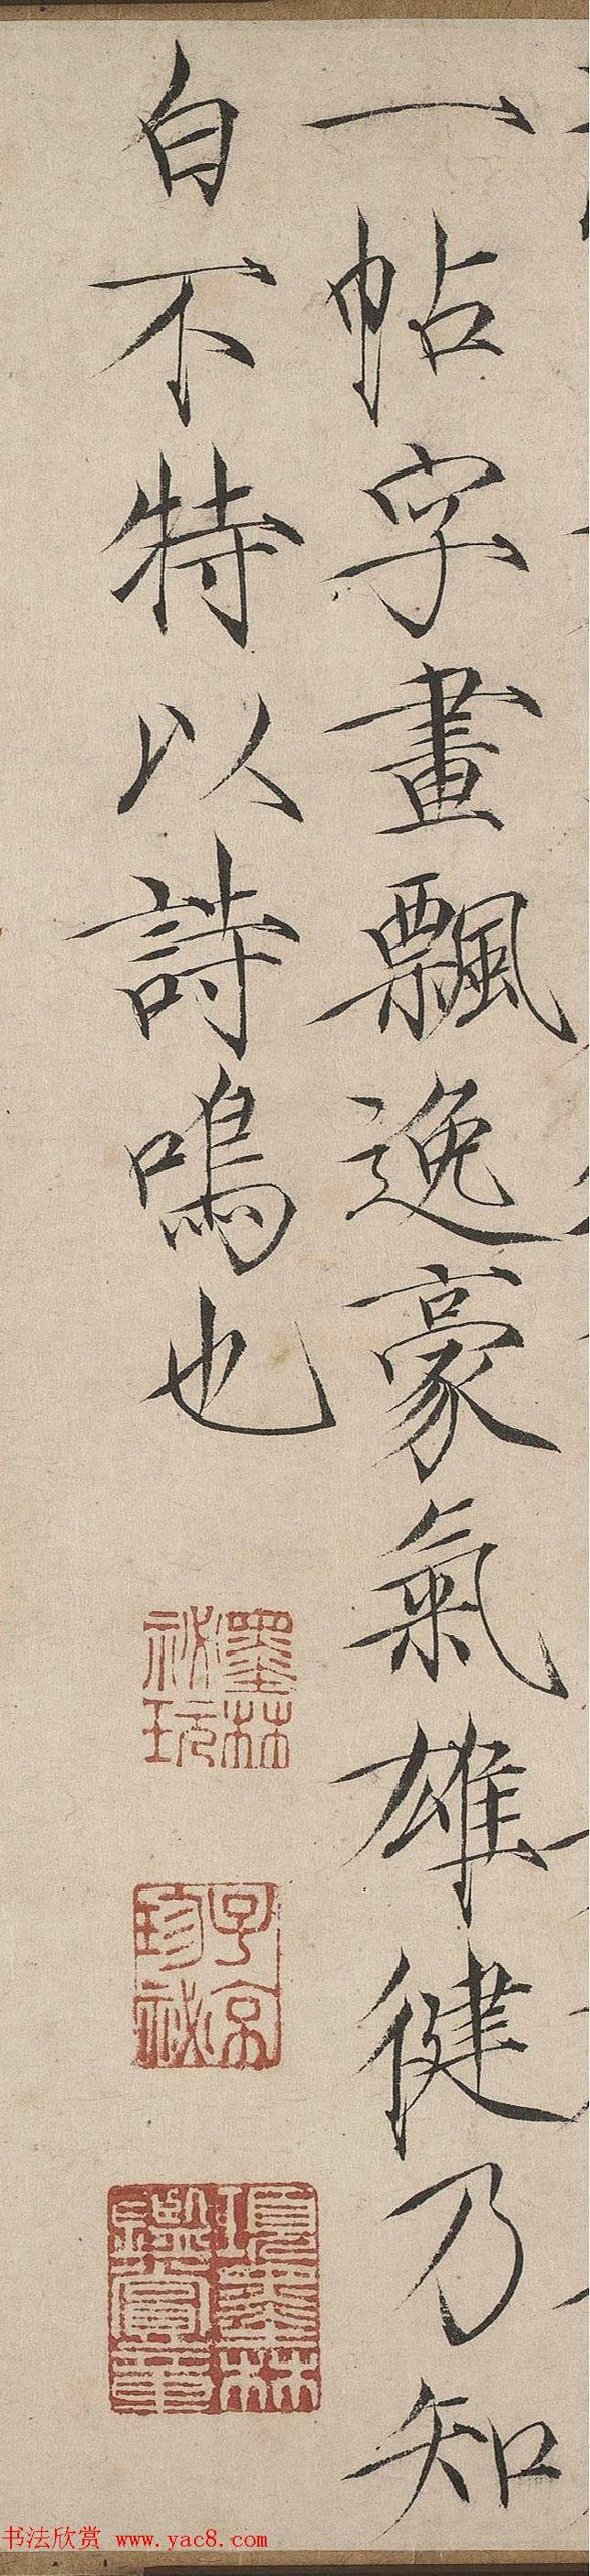 一帖字畫飄逸豪氣雄健乃知
白不特以詩鳴也
墨林
祕玩
子京
珍祕
項墨林
鑑賞章
书法欣赏 www.yac8.com